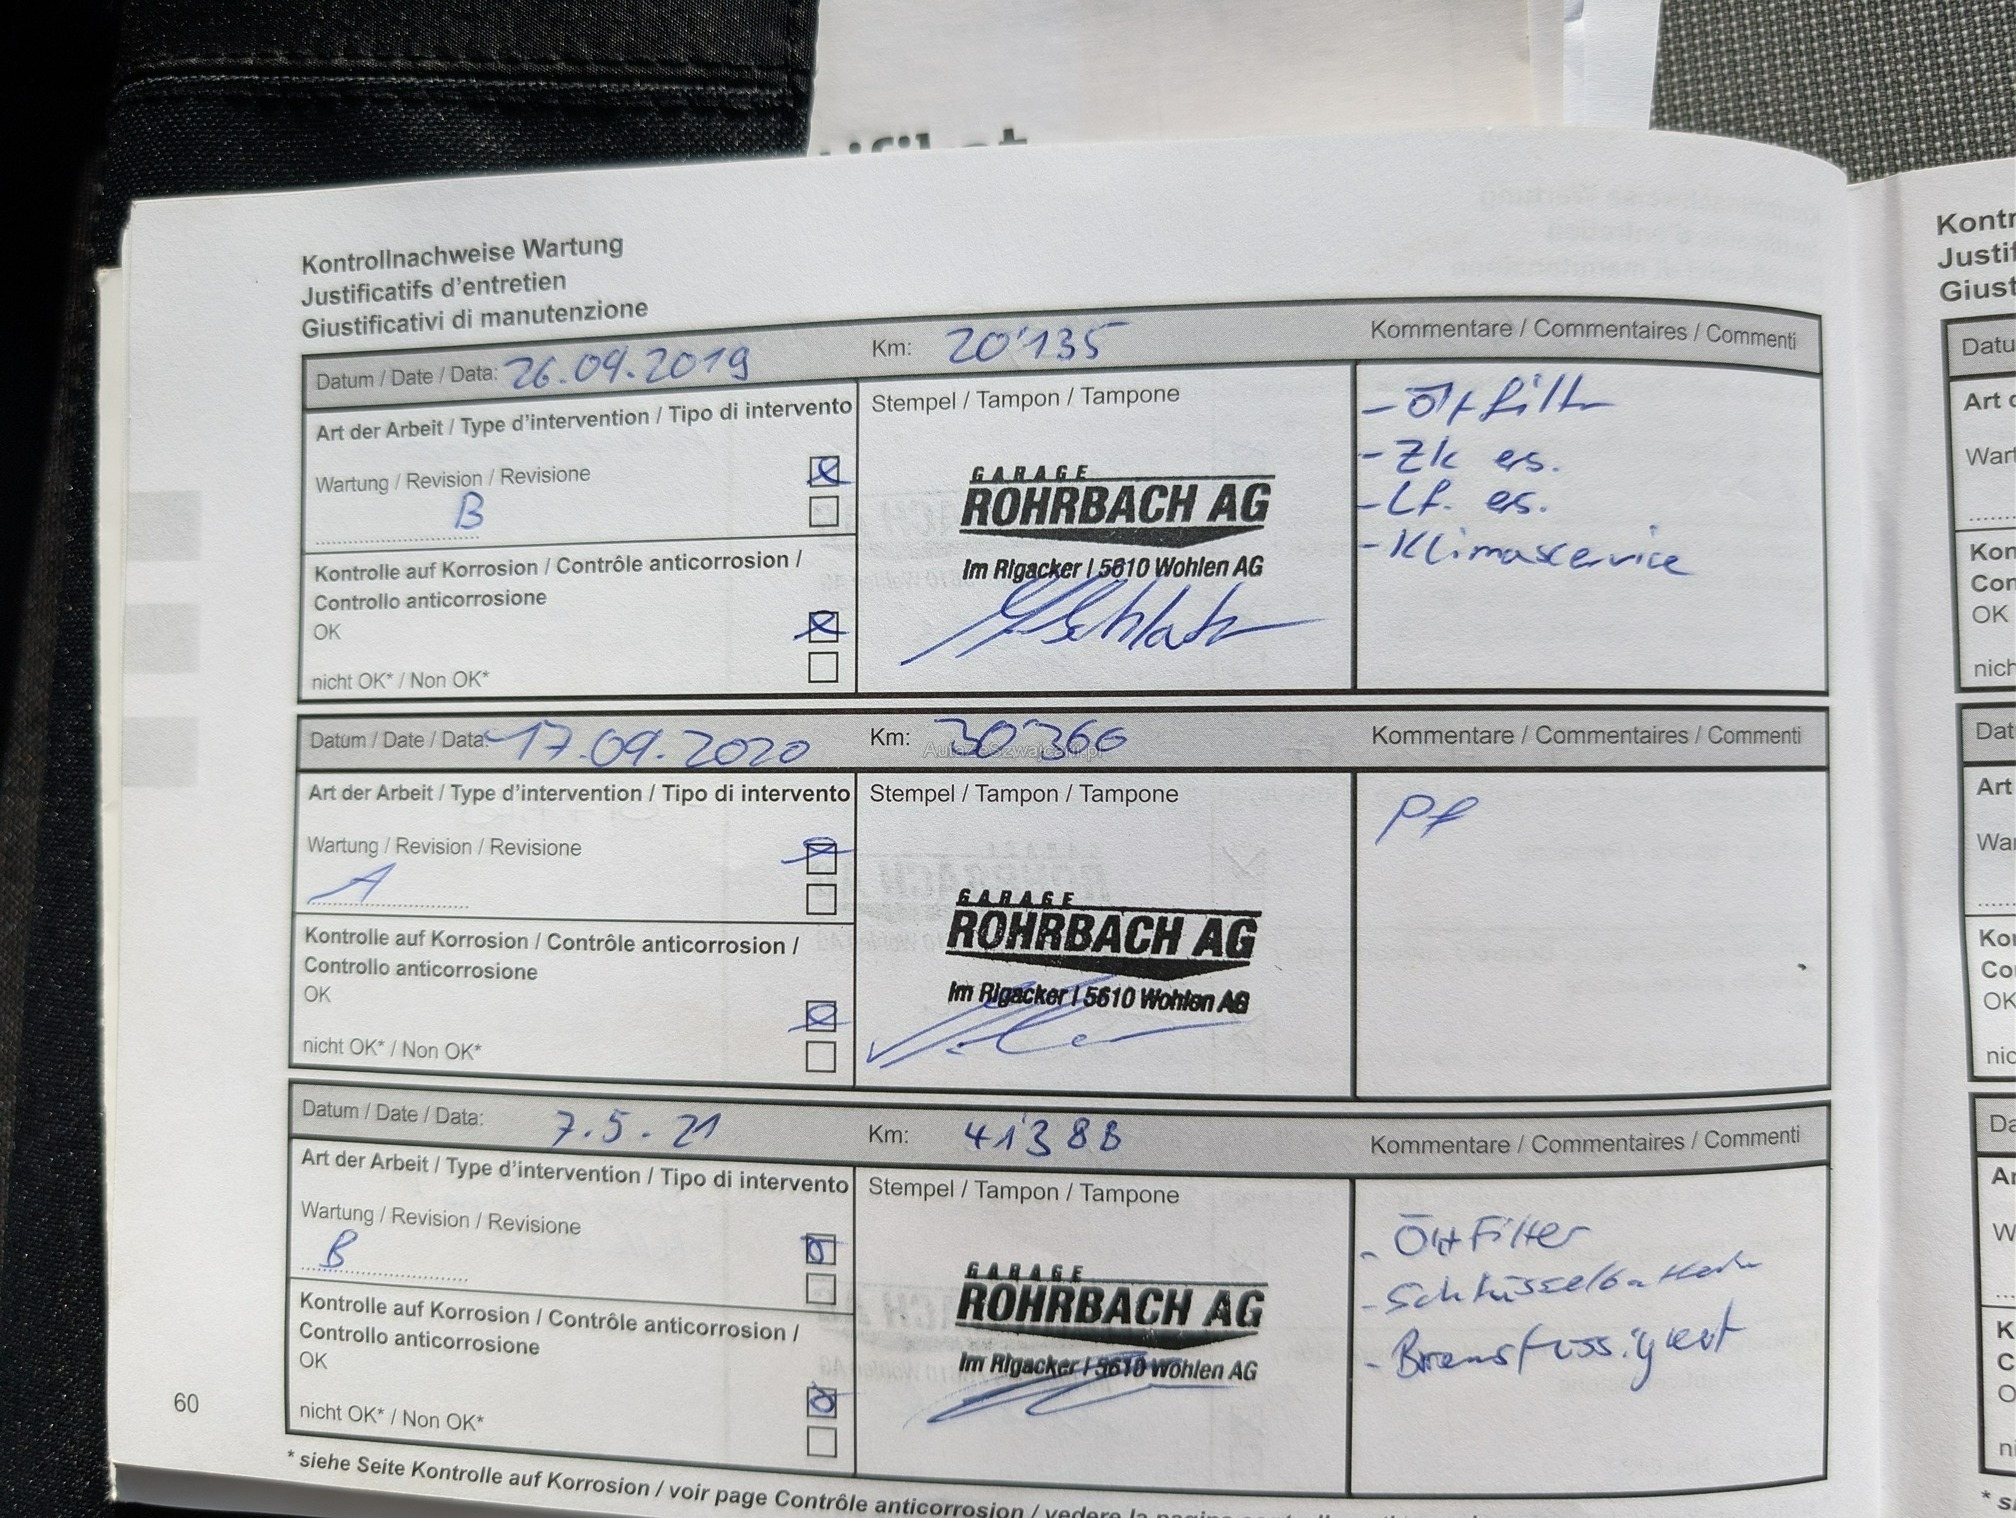 Kontrollnachweise Wartung
Justificatifs d'entretien
Giustificativi di manutenzione
Datum / Date / Data: 26.09.2019 Km: 20'135 Kommentare / Commentaires / Commenti
Art der Arbeit / Type d'intervention / Tipo di intervento Stempel / Tampon / Tampone
- Öl + filter
Wartung / Revision / Revisione
- Zk ers.
B
- Lf. ers.
GARAGE
ROHRBACH AG
- Klimaservice
Kontrolle auf Korrosion / Contrôle anticorrosion /
Im Rigacker | 5610 Wohlen AG
Controllo anticorrosione
OK
nicht OK* / Non OK*
Datum / Date / Data: 17.09.2020 Km: 30'366 Kommentare / Commentaires / Commenti
AutazeSzwajcarii.pl
Art der Arbeit / Type d'intervention / Tipo di intervento Stempel / Tampon / Tampone
Pf
Wartung / Revision / Revisione
A
GARAGE
ROHRBACH AG
Kontrolle auf Korrosion / Contrôle anticorrosion /
Controllo anticorrosione
Im Rigacker | 5610 Wohlen AG
OK
nicht OK* / Non OK*
Datum / Date / Data: 7.5.21 Km: 41'388 Kommentare / Commentaires / Commenti
Art der Arbeit / Type d'intervention / Tipo di intervento Stempel / Tampon / Tampone
Wartung / Revision / Revisione
- Öl + Filter
B
- Schlüsselbatterie
GARAGE
ROHRBACH AG
Kontrolle auf Korrosion / Contrôle anticorrosion /
Controllo anticorrosione
Im Rigacker | 5610 Wohlen AG
OK
nicht OK* / Non OK*
60
* siehe Seite Kontrolle auf Korrosion / voir page Contrôle anticorrosion / vedere la pagina